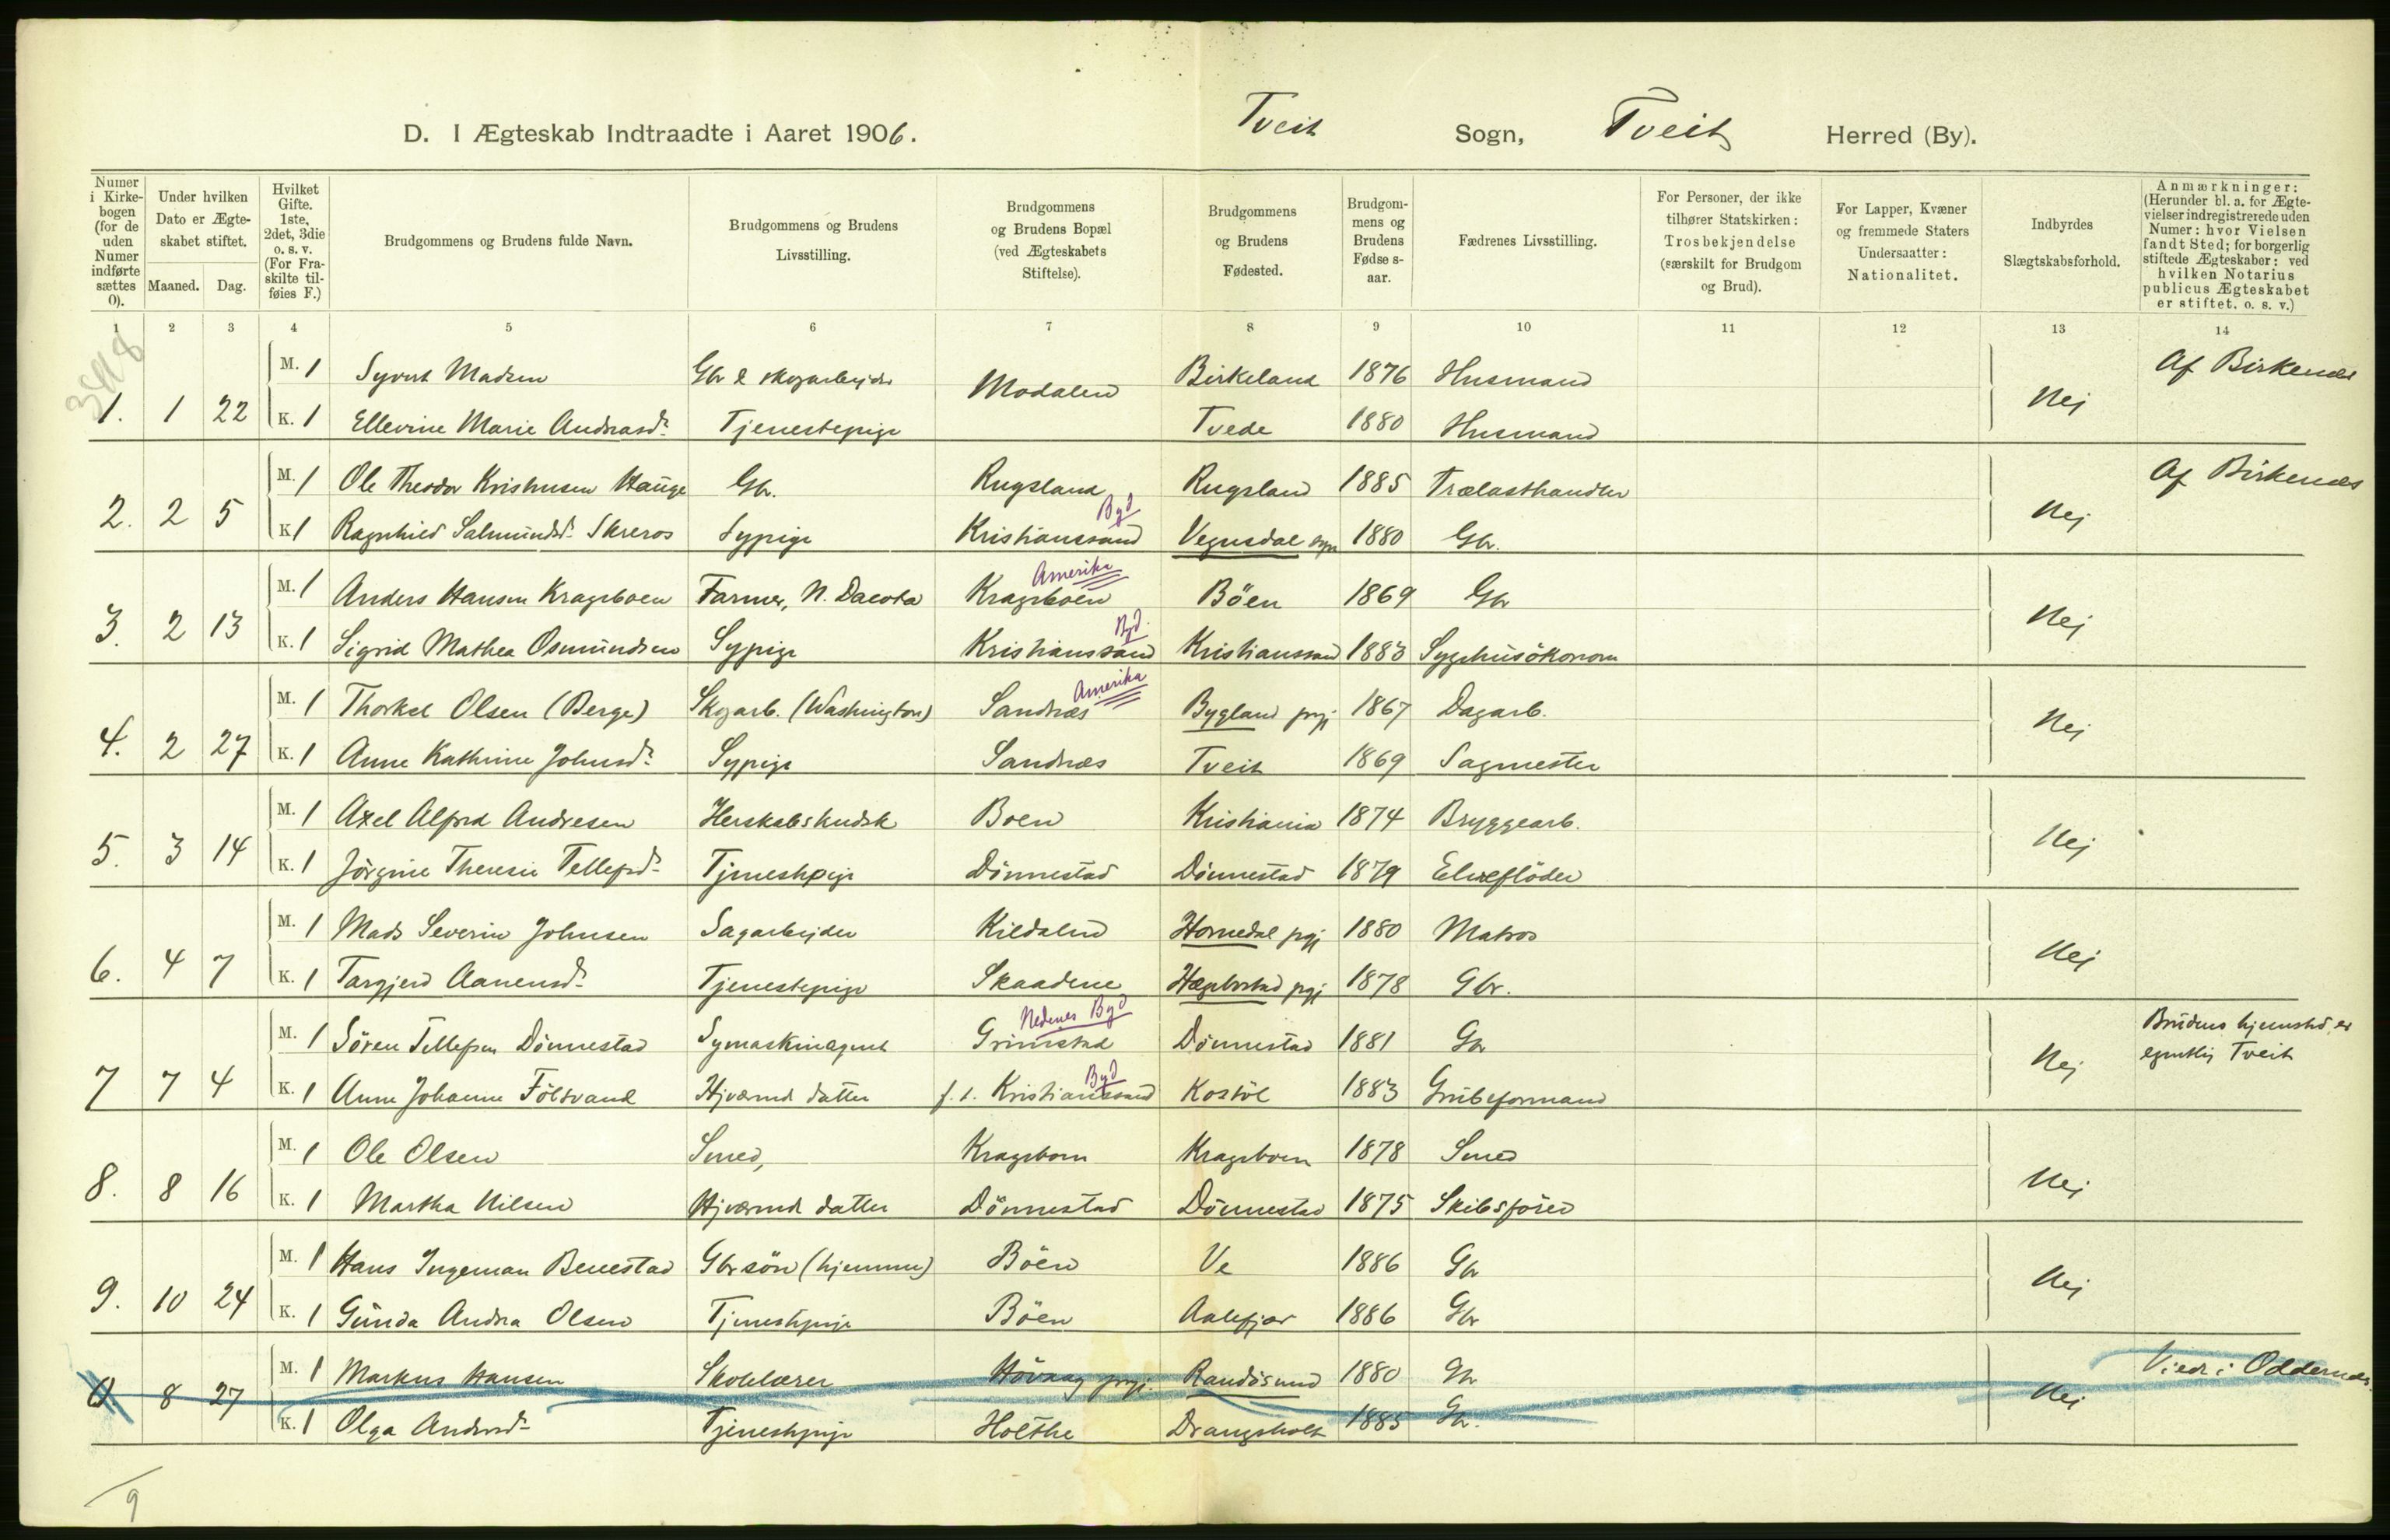 Tveit Sogn, Tveit Herred (By).
D. I Ægteskab Indtraadte i Aaret 1906.
Numer i Kirkebogen (for de uden Numer indførte sættes 0).
Under hvilken Dato er Ægteskabet stiftet.
Maaned. Dag.
Hvilket Gifte. 1ste, 2det, 3die o. s. v. (For Fraskilte tilføies F.)
Brudgommens og Brudens fulde Navn.
Brudgommens og Brudens Livsstilling.
Brudgommens og Brudens Bopæl (ved Ægteskabets Stiftelse).
Brudgommens og Brudens Fødested.
Brudgommens og Brudens Fødselsaar.
Fædrenes Livsstilling.
For Personer, der ikke tilhører Statskirken: Trosbekjendelse (særskilt for Brudgom og Brud).
For Lapper, Kvæner og fremmede Staters Undersaatter: Nationalitet.
Indbyrdes Slægtskabsforhold.
Anmærkninger: (Herunder bl. a. for Ægtevielser indregistrerede uden Numer: hvor Vielsen fandt Sted; for borgerlig stiftede Ægteskaber: ved hvilken Notarius publicus Ægteskabet er stiftet. o. s. v.)
1 2 3 4 5 6 7 8 9 10 11 12 13 14
M. 1 Syvert Madsen Gbr & skogarbejder Modalen Birkeland 1876 Husmand Af Birkenes
1. 1 22 K. 1 Ellevine Marie Andreasdr. Tjenestepige Tvede 1880 Husmand Nej
M. 1 Ole Theodor Kristensen Hauge Gbr. Rugsland Rugsland 1885 Trælasthandler Af Birkenes
2. 2 5 K 1 Ragnhild Salmundsdr. Skreros Sypige Kristianssand Byd Vegusdal sogn 1880 Gbr. Nej
M. 1 Anders Hansen Kragsboen Farmer, N. Dacota Kragsboen Amerika Böen 1869 Gbr
3. 2 13 K. 1 Sigrid Mathea Osmundsen Sypige Kristianssand Byd. Kristianssand 1883 Sygehusökonom Nej
M. 1 Thorkel Olsen (Berge) Skogarb. (Washington) Sandnæs Amerika Bygland prgj 1867 Dagarb.
4. 2 27 K. 1 Anne Kathrine Johnsdr. Sypige Sandnæs Tveit 1869 Sagmester Nej
M. 1 Axel Alfred Andresen Herskabskudsk Boen Kristiania 1874 Bryggearb.
5. 3 14 K. 1 Jörgine Theresie Tellefsdr. Tjenestepige Dönnestad Dönnestad 1879 Elveflöder Nej
M. 1 Mads Severin Johnsen Sagarbejder Kildalen Hornedal prgj 1880 Matros
6. 4 7 K. 1 Targjerd Aanensdr. Tjenestepige Skaadene Hægebostad prgj 1878 Gbr. Nej
M. 1 Sören Tellefsen Dönnestad Symaskinagent Grimstad Nedenes Byd Dönnestad 1881 Gbr Brudens hjemsted er
egentlig Tveit
7 7 4 K. 1 Anne Johanne Fölsvand Hjværend datter f. t. Kristianssand Byd Kostöl 1883 Grubeformand Nej
M. 1 Ole Olsen Smed, Kragsboen Kragsboen 1878 Smed
8. 8 16 K. 1 Martha Nilsen Hjværend datter Dönnestad Dönnestad 1875 Skibsförer Nej
M. 1 Hans Ingeman Benestad Gbr sön (hjemme) Böen Ve 1886 Gbr
9. 10 24 K. 1 Gunda Andrea Olsen Tjenestepige Böen Aalefjær 1886 Gbr Nej
M. 1 Markus Hansen Skolelærer Hövaag prgj. Randösund 1880 Gbr Viedt i Oddernes.
0. 8 27 K. 1 Olga Andersdr. Tjenestepige Holthe Drangsholt 1885 Gbr. Nej
9